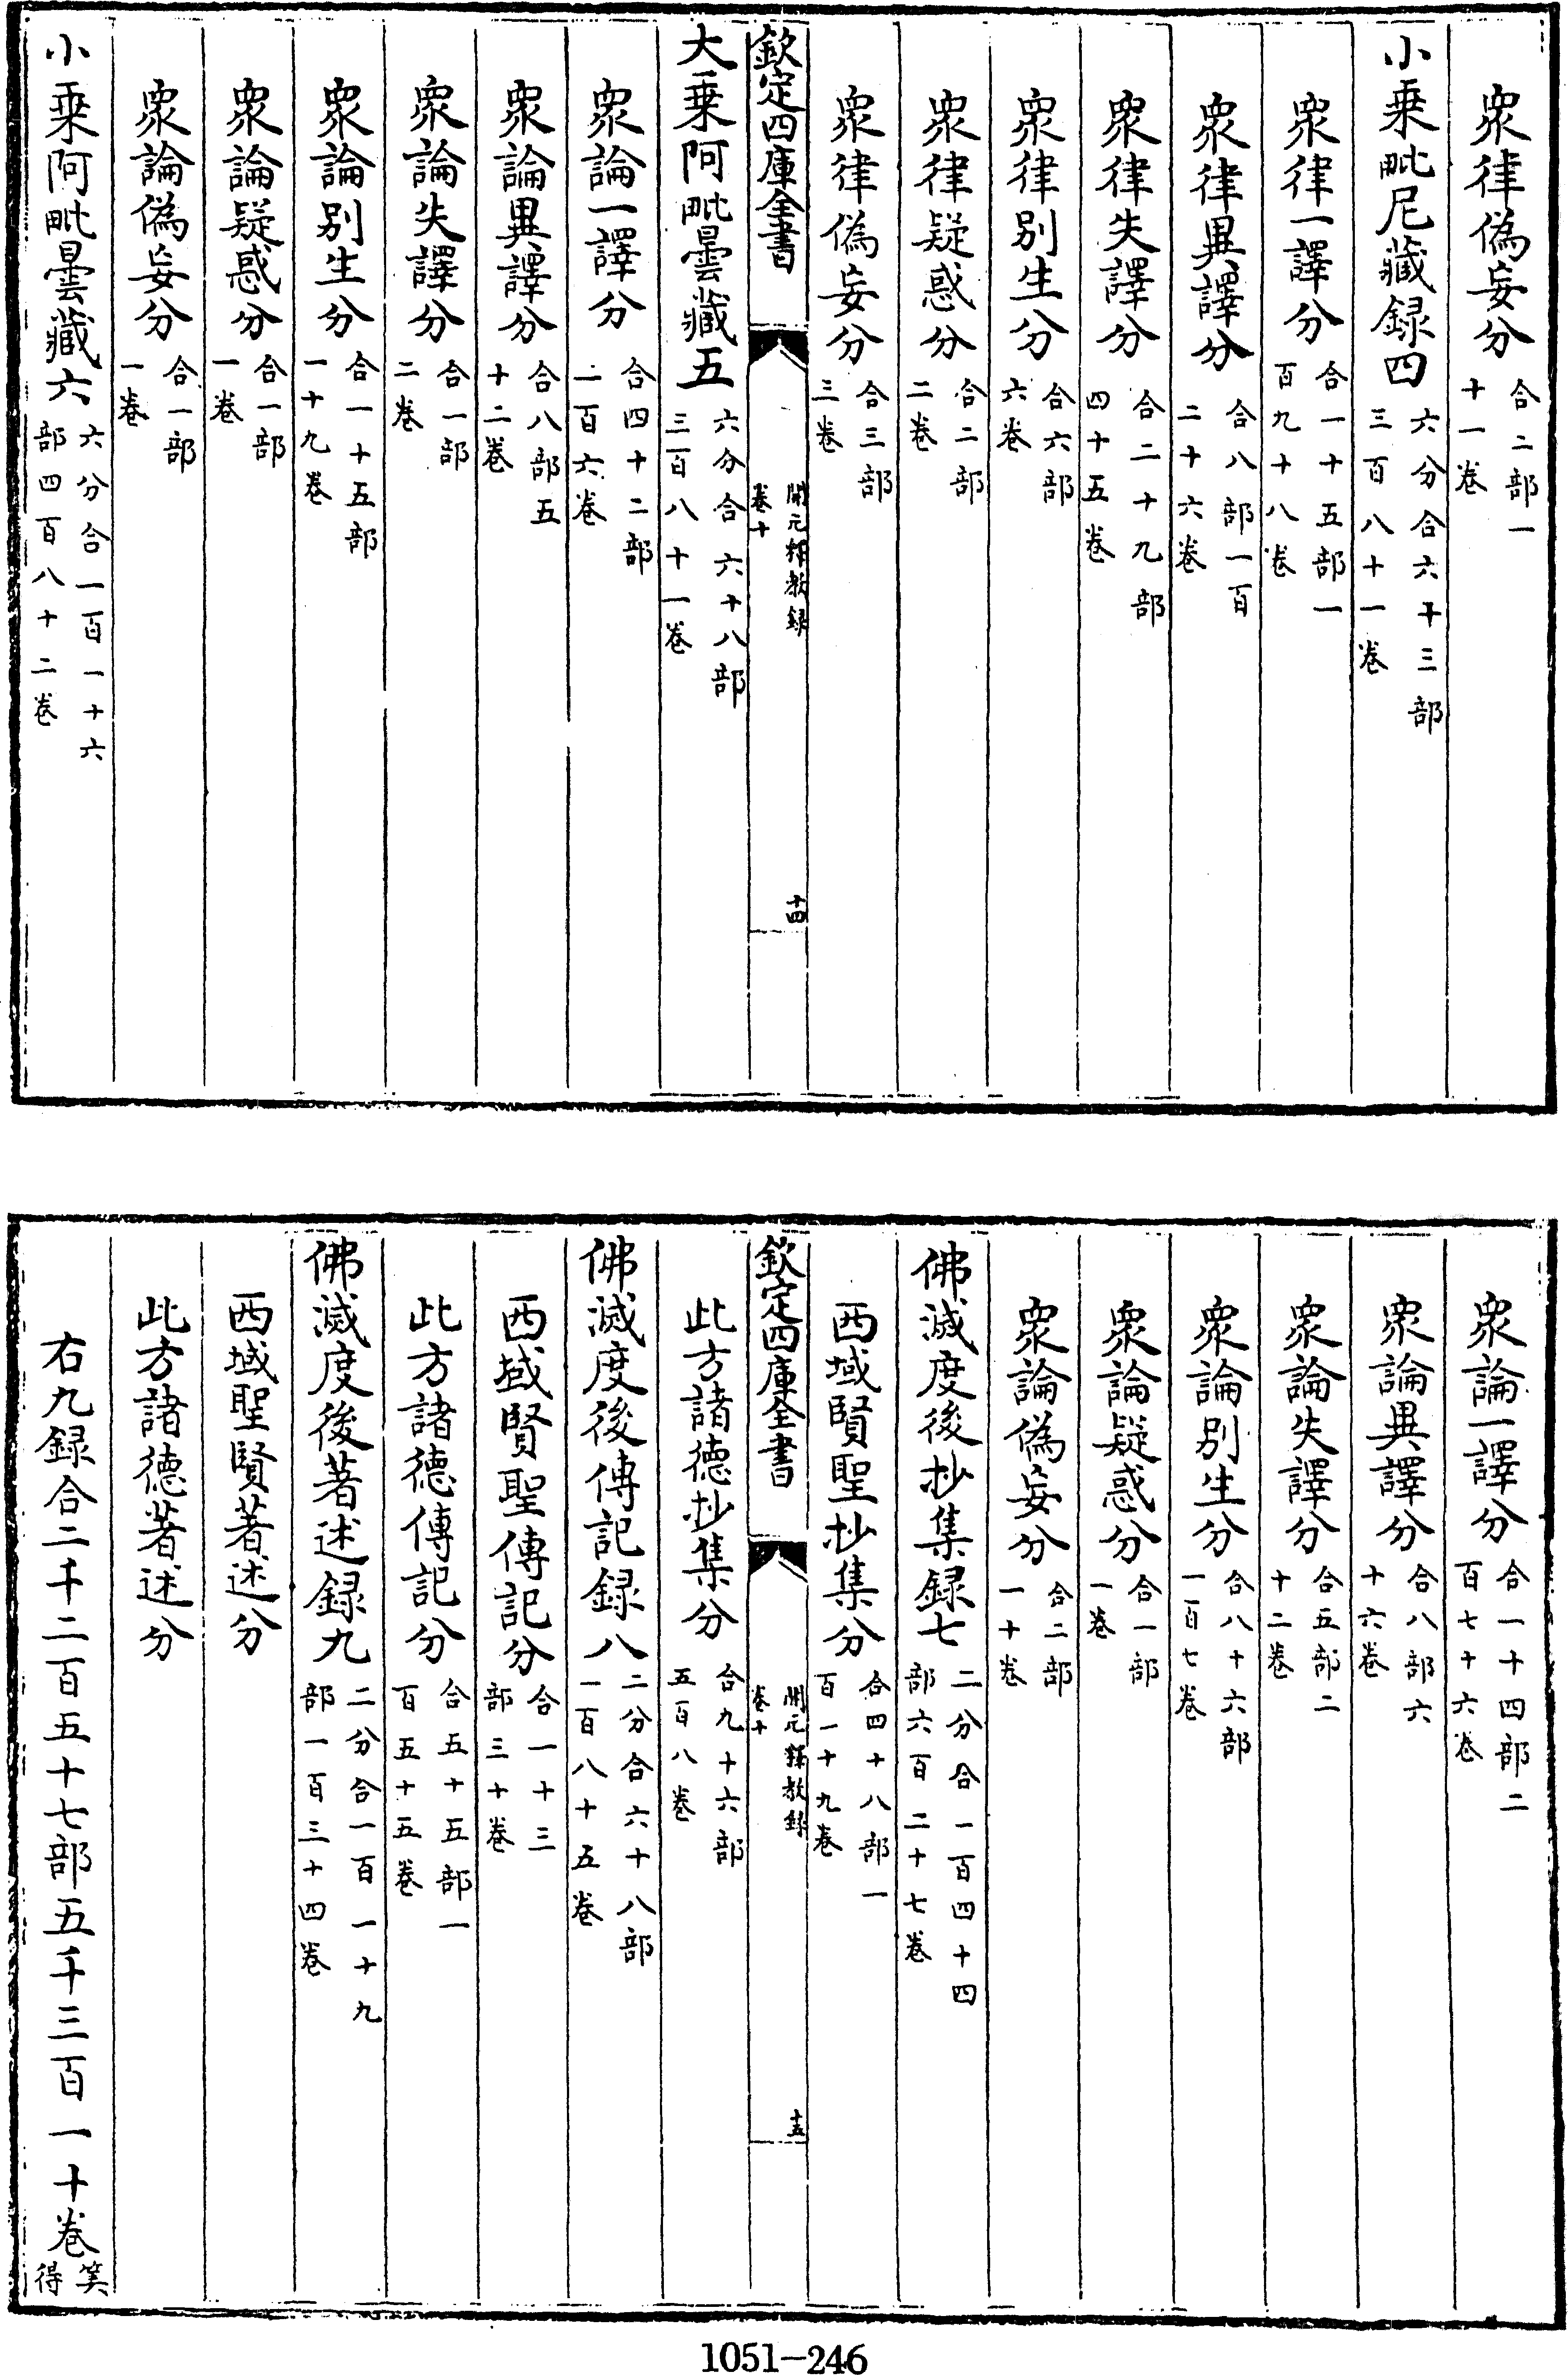 衆律偽妄分合二部一十一卷
小乗毗尼藏録四六分合六十三部三百八十一卷
衆律一譯分合一十五部一百九十八卷
衆律異譯分合八部一百二十六卷
衆律失譯分合二十九部四十五卷
衆律別生分合六部六卷
衆律疑惑分合二部二卷
衆律偽妄分合三部三卷
欽定四庫全書 開元釋教録卷十 十四
大乗阿毗曇藏五六分合六十八部三百八十一卷
衆論一譯分合四十二部二百六卷
衆論異譯分合八部五十二卷
衆論失譯分合一部二卷
衆論別生分合一十五部一十九卷
衆論疑惑分合一部一卷
衆論偽妄分合一部一卷
小乗阿毗曇藏六六分合一百一十六部四百八十二卷
衆論一譯分合一十四部二百七十六卷
衆論異譯分合八部六十六卷
衆論失譯分合五部二十二卷
衆論別生分合八十六部一百七卷
衆論疑惑分合一部一卷
衆論偽妄分合二部一十卷
佛滅度後抄集録七二分合一百四十四部六百二十七卷
西域賢聖抄集分合四十八部一百一十九卷
欽定四庫全書 開元釋教録卷十 十五
此方諸徳抄集分合九十六部五百八卷
佛滅度後傳記録八二分合六十八部一百八十五卷
西域賢聖傳記分合一十三部三十卷
此方諸徳傳記分合五十五部一百五十五卷
佛滅度後著述録九二分合一百一十九部一百三十四卷
西域聖賢著述分
此方諸徳著述分
右九録合二千二百五十七部五千三百一十卷筭得
1051-246